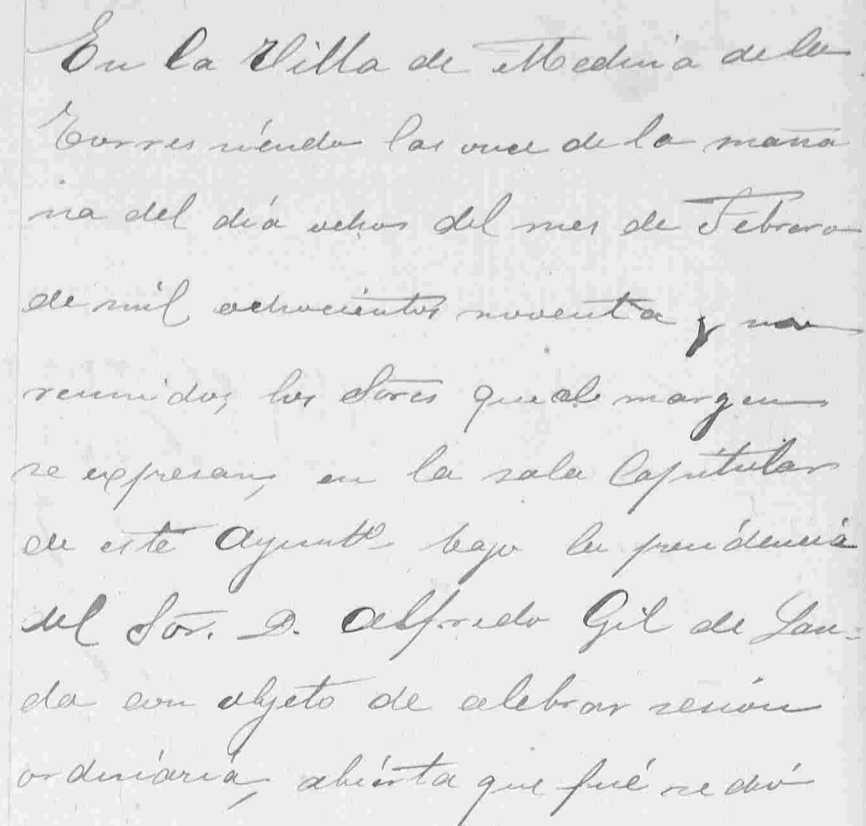 En la Villa de Medina de las
Torres siendo las once de la maña
na del día ocho del mes de Febrero
de mil ochocientos noventa y un
reunidos, los Sores que al margen
se expresan, en la sala Capitular
de este Ayuntº bajo la presidencia
del Sor. D. Alfredo Gil de Lan-
da con objeto de celebrar sesión
ordinaria, abierta que fué se dió